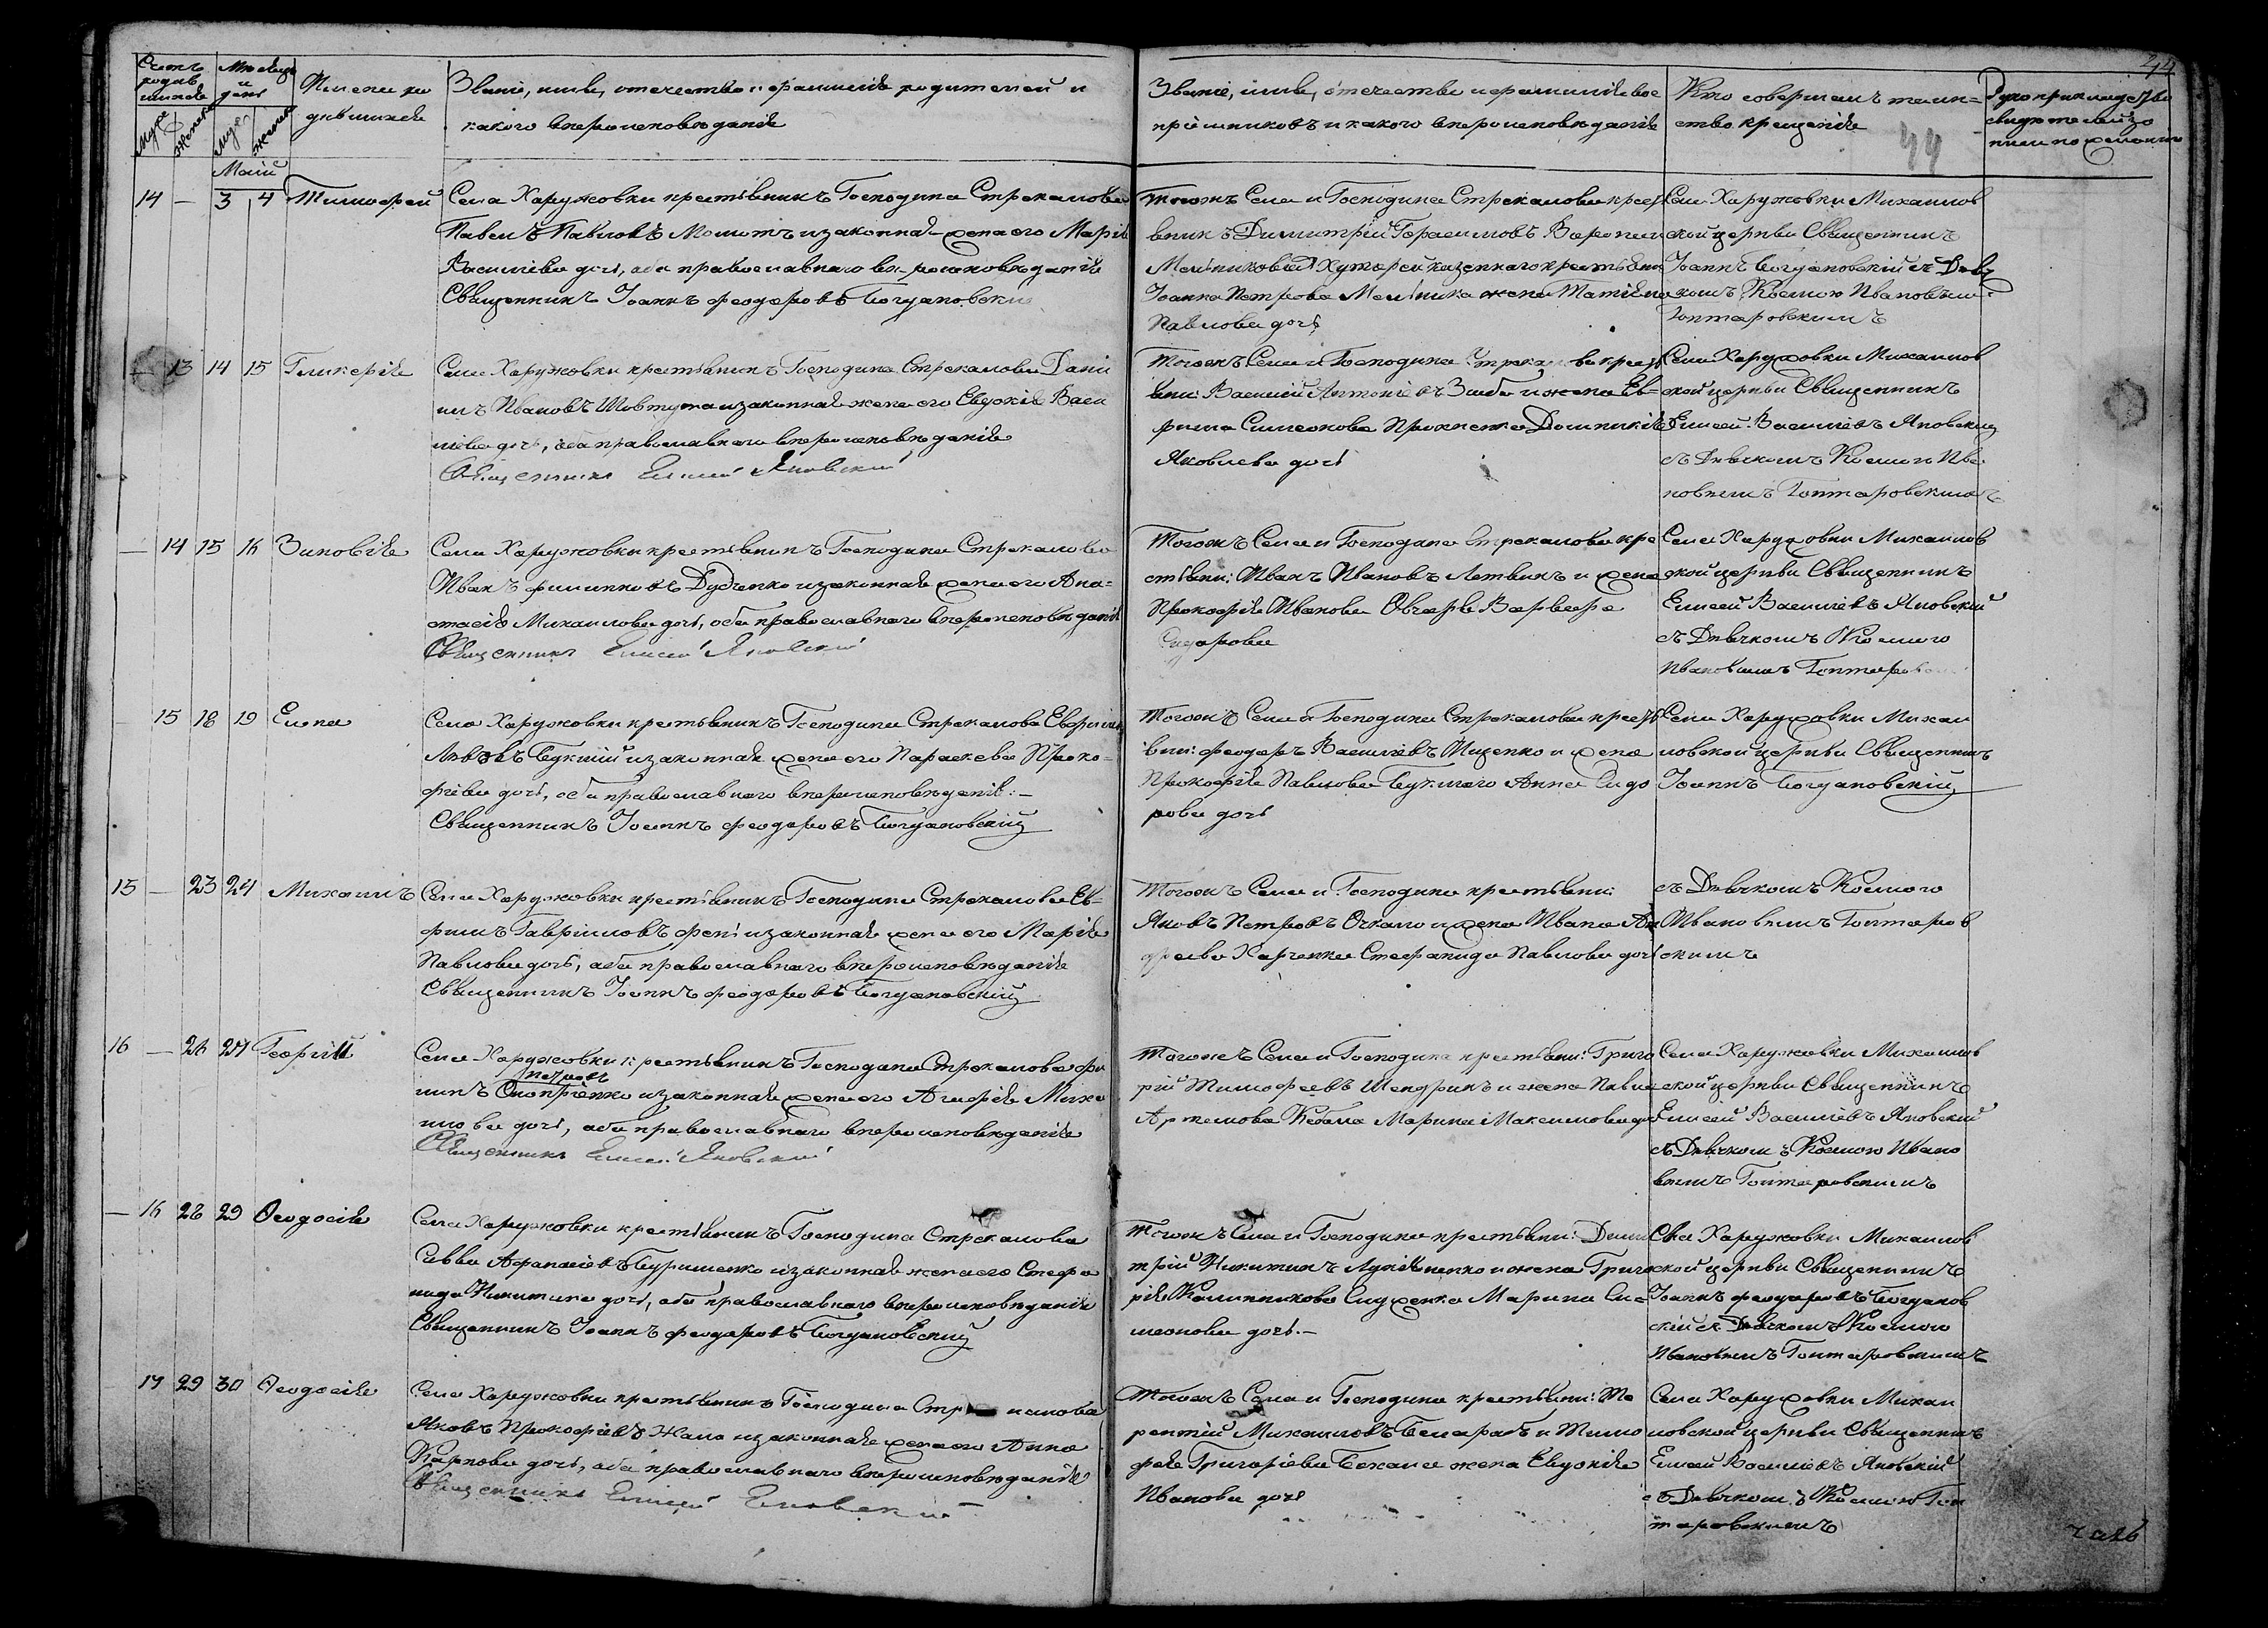 Счетъ родившихся
Мужеска
Женска
Месяцъ и день
Имена родившихся
Званіе, имя, отечество и фамилія родителей и
какого вероисповѣданія
Званіе, имя, отечество и фамилія вос
пріемниковъ и какого вероисповѣданія
Кто совершалъ таин=
ство крещенія
Рукоприкладство
свидетелей
44
Маій
14 — 3 4 Тимофей
Села Харужовки крестьянинъ Господина Стрекалова
Павелъ Павловъ изаконная жена его Марія
Василіева дочь, оба православнаго вероисповѣданія
Священникъ Іоаннъ Феодоровъ Богдановскій
Тогожъ Села и Господина Стрекалова крест
янинъ Димитрій Герасимовъ
хуторей казеннаго крестьянина
Іоанна Петрова Мельника жена Татіяна
Павлова дочь
Села Харужовки Михаилов
ской церкви Священникъ
Іоаннъ Богдановскій съ Дьяч
комъ Космою Ивановымъ
Гоптаровскимъ
— 13 14 15 Гликерія
Села Харужовки крестьянинъ Господина Стрекалова Дани
илъ Ивановъ Шовтута изаконная жена его Евдокія Васи
ліева дочь, оба православнаго вероисповѣданія
Священникъ Елисей Яновскій
Тогожъ Села и Господина Стрекалова крест
яни: Василій Антоніевъ и жена Ев=
фима Симеонова Домникія
Яковлева дочь
Села Харужовки Михаилов
ской церкви Священникъ
Елисей Василіевъ Яновскій
съ Дьячкомъ Космою Ива
новымъ Гоптаровскимъ
— 14 15 16 Зиновія
Села Харужовки крестьянинъ Господина Стрекалова
Иванъ Филиповъ Дудченко изаконная жена его Ана=
стасія Михаилова дочь, оба православнаго вероисповѣданія
Священникъ Елисей Яновскій
Тогожъ Села и Господина Стрекалова кре
стьяни: Иванъ Ивановъ Литвинъ и жена
Прокофія Иванова Овчаря Варвара
Сидорова
Села Харужовки Михаилов
ской церкви Священникъ
Елисей Василіевъ Яновскій
съ Дьячкомъ Космою
Ивановымъ Гоптаровс
— 15 18 19 Елена
Села Харужовки крестьянинъ Господина Стрекалова
изаконная жена его Параскева Проко=
фіева дочь, оба православнаго вероисповѣданія:—
Священникъ Іоаннъ Феодоровъ Богдановскій
Тогожъ Села и Господина Стрекалова крест
яни: Феодоръ Василіевъ Ищенко и жена
Прокофія Павлова Анна Сидо
рова дочь
Села Харужовки Михаи
ловской церкви Священникъ
Іоаннъ Богдановскій
15 — 23 24 Михаилъ
Села Харужовки крестьянинъ Господина Стрекалова Ев=
фимъ Гавриловъ изаконная жена его Марія
Павлова дочь, оба православнаго вероисповѣданія
Священникъ Іоаннъ Феодоровъ Богдановскій
Тогожъ Села и Господина крестьяни:
Яковъ Петровъ и жена Ивана
Харченка Стефанида Павлова дочь
съ Дьячкомъ Космою
Ивановымъ Гоптаров
скимъ
16 — 26 27 Георгій
Села Харужовки крестьянинъ Господина Стрекалова Фи
липъ Петровъ Онопріенко изаконная жена его Агафія Миха
илова дочь, оба православнаго вероисповѣданія
Священникъ Елисей Яновскій
Тогожъ Села и Господина крестьяни: Григо
рій Тимофеевъ Шендрикъ и жена Павла
Артемова Марина Максимова до
Села Харужовки Михаилов
ской церкви Священникъ
Елисей Василіевъ Яновскій
съ Дьячкомъ Космою Ивано
вымъ Гоптаровскимъ
— 16 28 29 Ѳеодосія
Села Харужовки крестьянинъ Господина Стрекалова
Савва Афанасіевъ изаконная жена его Стефа
нида Никитина дочь, оба православнаго вероисповѣданія
Священникъ Іоаннъ Феодоровъ Богдановскій
Тогожъ Села и Господина крестьяни: Дими
трій Никитинъ Лукьяненко и жена Григо
рія Калинникова Марина Си=
меонова дочь.—
Села Харужовки Михаилов
ской церкви Священникъ
Іоаннъ Феодоровъ Богданов
скій съ Дьячкомъ Космою
Ивановымъ Гоптаровскимъ
17 29 30 Ѳеодосія
Села Харужовки крестьянинъ Господина Стрекалова
Яковъ Прокофіевъ изаконная жена его Анна
Карпова дочь, оба православнаго вероисповѣданія
Священникъ Елисей Яновскій
Тогожъ Села и Господина крестьяни: Те
рентій Михаиловъ и Тимо
фея Григоріева жена Евдокія
Иванова дочь
Села Харужовки Михаи
ловской церкви Священникъ
Елисей Василіевъ Яновскій
съ Дьячкомъ Космою Гоп
таровскимъ